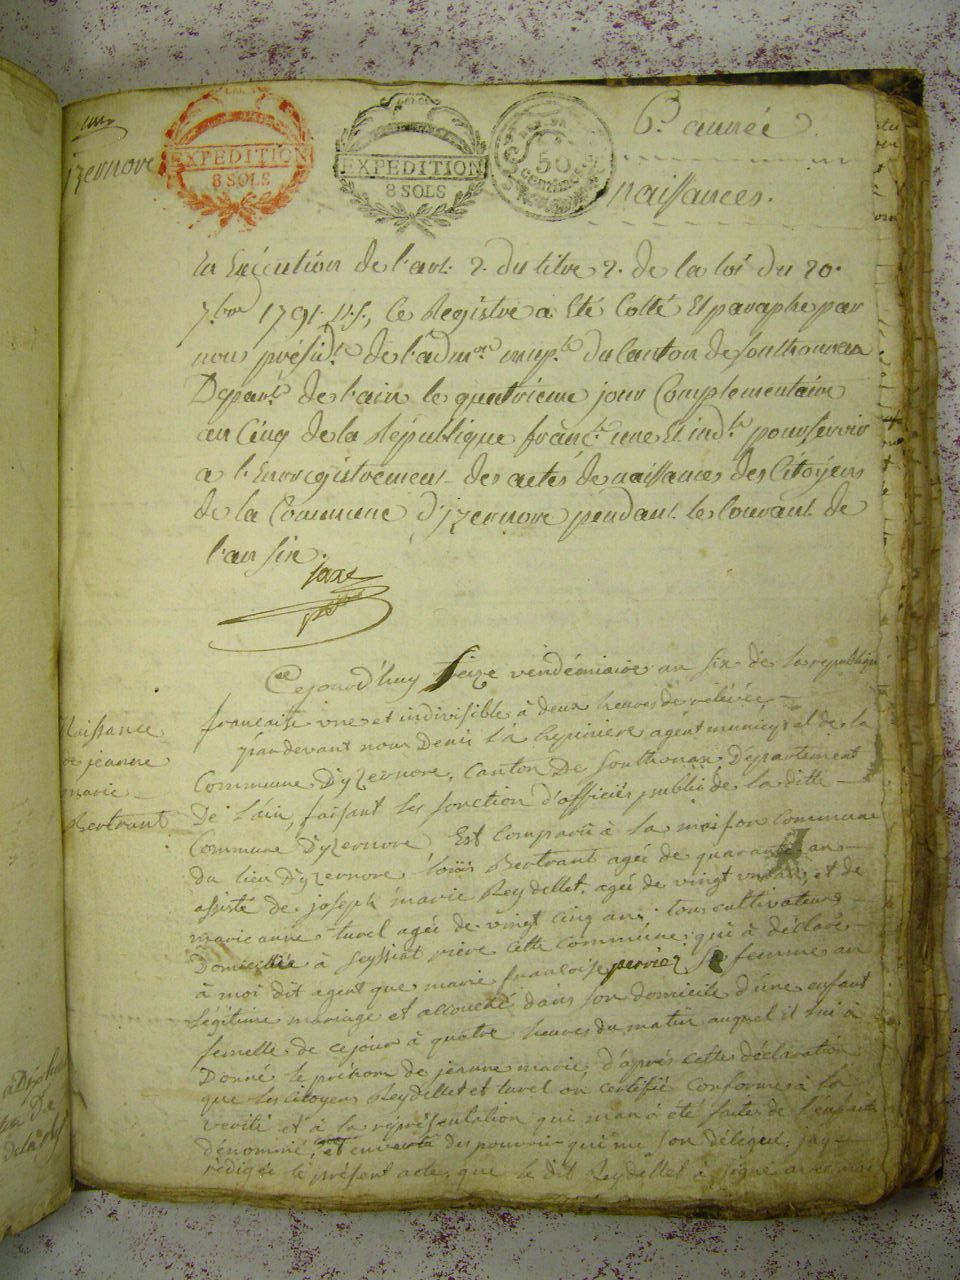 izernore
EXPEDITION
8 SOLS
EXPEDITION
8 SOLS
50
centimes
6e. année
naissances.
En Exécution de l'art. 2. du titre 2. de la loi du 20.
7bre 1791. V.S., le Registre a Eté Cotté Et paraphé par
nous présidt. de l'admon. mup.le du Canton de Sonthonnax
Départt. de l'ain le quatrieme jour Complementaire
an Cinq de la République franc.e une Et ind.le pour servir
a l'Enregistrement des actes de naissances des Citoyens
de la Commune d'izernore pendant le Courant de
l'an Six.
Naissance
de jeanne
marie
Bertrant
Cejourd'huy Seize vendémiaire an six de la republique
francaise vne et indivisible à deux heures de relévée
pardevant nous Denis La Repiniere agent municypal de la
Commune Dyzernore, Canton De Sonthonax Département
De Lain, faisant les fonction d'officiés publié de la ditte
Commune Dyzernore, Est Comparû à La maison Commune
du lieu Dyzernore loüis Bertrant agée de quarante an
assisté de joseph marie Reydellet agée de vingt et de
marie anne turel agée de vingt Cinq ans; tous cultivateurs
Domiciliée à Seyssiat rière Cette Commune; qui à déclaré
à moi dit agent que marie francoise perrier sa femme an
Légitime mariage et allouché dans son domicile d'üne enfant
femelle de cejour à quatre heures du matin auquel il lui à
Donné le prénom de jeanne marie, d'aprés cette déclaration
que les citoyens Reydellet et turel on certifié Conforme à la
verité et à la représentation qui man à été faites de l'enfant
dénommé, et en vertu des pouvoir qui me son délégué; jay
rédigée le présent acte, que le dit Reydellet à signé avec moi